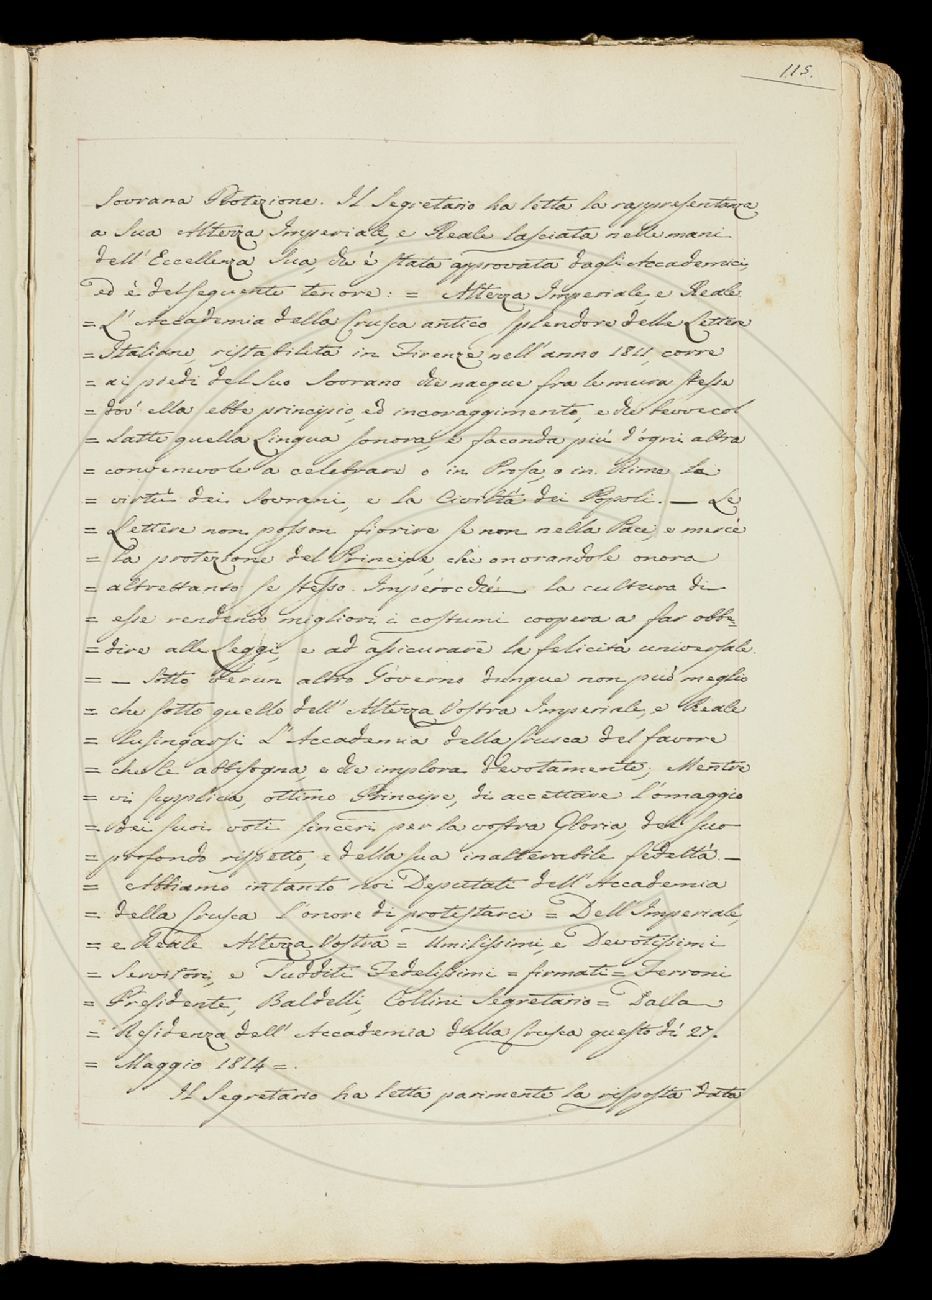 115.
Sovrana Protezione. Il Segretario ha letta la rappresentanza
a Sua Altezza Imperiale, e Reale lasciata nelle mani
dell'Eccellenza Sua, che è stata approvata dagli Accademici,
ed è del seguente tenore: = Altezza Imperiale, e Reale
= L'Accademia della Crusca antico splendore delle Lettere
= Italiane, ristabilita in Firenze nell'anno 1811, corre
= ai piedi del suo Sovrano che nacque fra le mura stesse
= dov'ella ebbe principio, ed incoraggimento, e che bevve col
= Latte quella Lingua sonora, e faconda più d'ogni altra
= convenevole a celebrare o in Prosa, o in Rime le
= virtù dei Sovrani, e la Civiltà dei Popoli. — Le
= Lettere non posson fiorire se non nella Pace, e mercè
= la protezione del Principe, che onorandole onora
= altrettanto se stesso. Imperocchè la cultura di
= esse rendendo migliori i costumi coopera a far obbe=
= dire alle Leggi, e ad assicurare la felicità universale.
= — Sotto verun altro Governo dunque non può meglio
= che sotto quello dell'Altezza Vostra Imperiale, e Reale
= lusingarsi L'Accademia della Crusca del favore
= che le abbisogna, e che implora devotamente; Mentre
= vi supplica, ottimo Principe, di accettare l'omaggio
= dei suoi voti sinceri per la vostra Gloria, del suo
= profondo rispetto, e della sua inalterabile fedeltà. —
= Abbiamo intanto noi Deputati dell'Accademia
= della Crusca l'onore di protestarci = Dell'Imperiale,
= e Reale Altezza Vostra = Umilissimi, e Devotissimi
= Servitori, e Sudditi Fedelissimi = firmati = Ferroni
= Presidente, Baldelli, Collini Segretario = Dalla
= Residenza dell'Accademia della Crusca questo dì 27.
= Maggio 1814 =.
Il Segretario ha letta parimente la risposta data